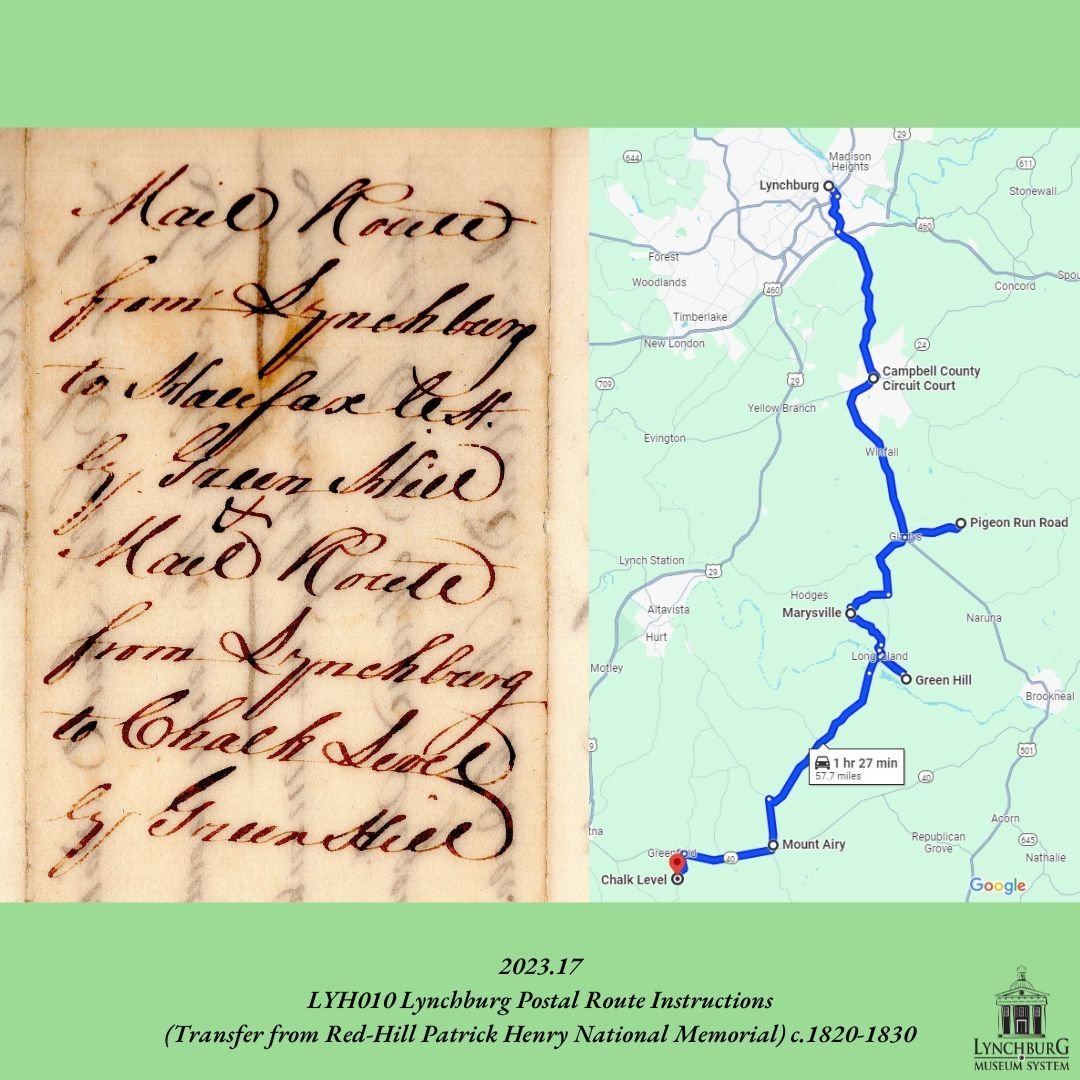 Mail Route
from Lynchburg
to Hallifax Ct. H.
by Green Hill
&
Mail Route
from Lynchburg
to Chalk Level
by Green Hill
Madison
Heights
Lynchburg
29
644
611
Stonewall
460
Forest
Woodlands
460
Concord
Timberlake
New London
24
Campbell County
Circuit Court
709
29
Yellow Branch
Evington
Winfall
Pigeon Run Road
Gladys
Lynch Station
29
Hodges
Altavista
Marysville
Naruna
Hurt
Long Island
Motley
Green Hill
Brookneal
501
1 hr 27 min
57.7 miles
40
Acorn
Republican
Grove
645
Mount Airy
Nathalie
Greenfield
40
Chalk Level
Google
2023.17
LYH010 Lynchburg Postal Route Instructions
(Transfer from Red-Hill Patrick Henry National Memorial) c.1820-1830
LYNCHBURG
MUSEUM SYSTEM